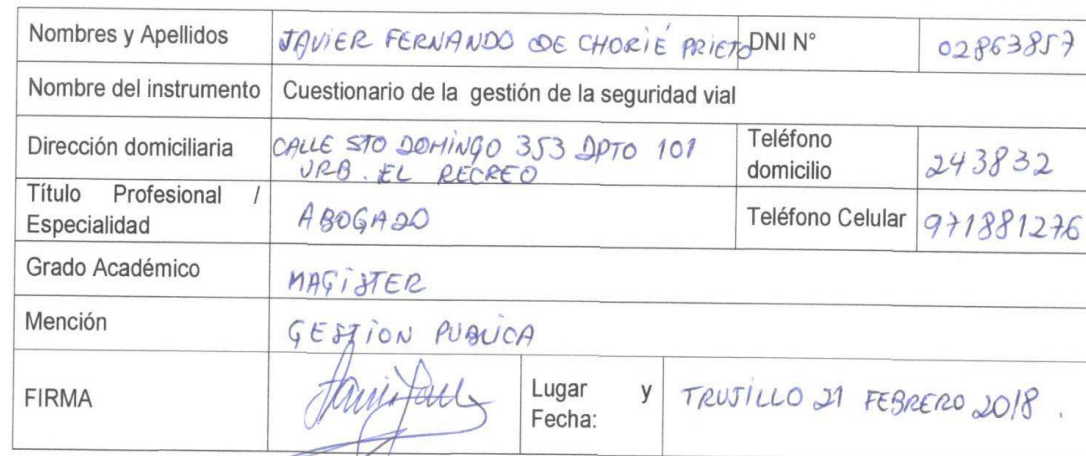 Nombres y Apellidos JAVIER FERNANDO DE CHORIÉ PRIETO DNI N° 02863857
Nombre del instrumento Cuestionario de la gestión de la seguridad vial
Dirección domiciliaria CALLE STO DOMINGO 353 DPTO 101
URB. EL RECREO
Teléfono
domicilio 243832
Título Profesional /
Especialidad ABOGADO
Teléfono Celular 971881276
Grado Académico MAGISTER
Mención GESTION PUBLICA
FIRMA
Lugar y
Fecha: TRUJILLO 21 FEBRERO 2018.